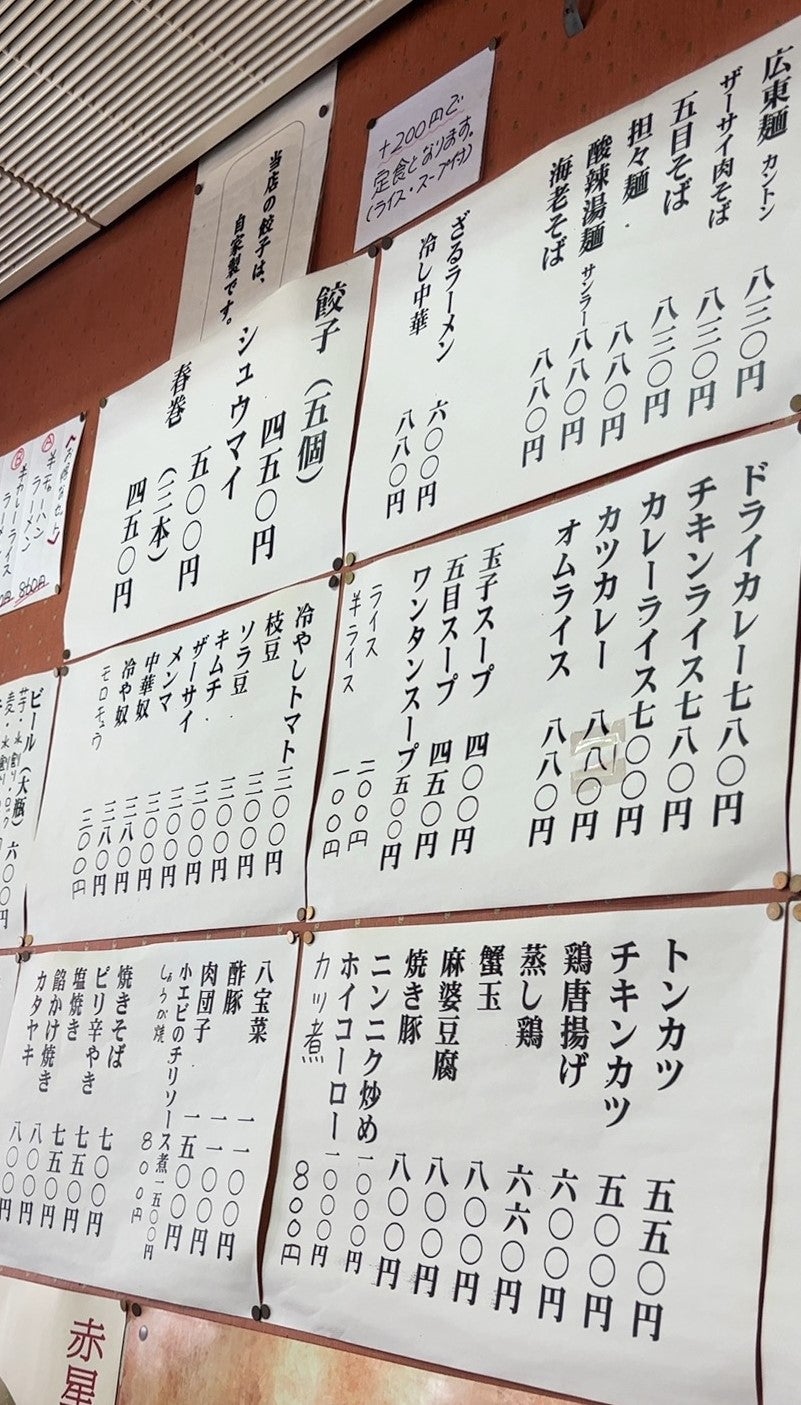 +200円で
定食となります。
(ライス・スープ付)
当店の餃子は、
自家製です。
広東麺 カントン 八三〇円
ザーサイ肉そば 八三〇円
五目そば 八三〇円
担々麺 八八〇円
酸辣湯麺 サンラー 八八〇円
海老そば 八八〇円
ざるラーメン 六〇〇円
冷し中華 八八〇円
餃子(五個) 四五〇円
シュウマイ 五〇〇円
春巻(三本) 四五〇円
Ⓐ半チャーハン
ラーメン
Ⓑ半カレーライス
ラーメン
860円
ドライカレー 七八〇円
チキンライス 七八〇円
カレーライス 七〇〇円
カツカレー 八八〇円
オムライス 八八〇円
玉子スープ 四〇〇円
五目スープ 四五〇円
ワンタンスープ 五〇〇円
ライス 二〇〇円
半ライス 一〇〇円
冷やしトマト 三〇〇円
枝豆 三〇〇円
ソラ豆 三〇〇円
キムチ 三〇〇円
ザーサイ 三〇〇円
メンマ 三〇〇円
中華奴 三八〇円
冷や奴 三八〇円
モロキュウ 三〇〇円
ビール(大瓶) 六〇〇円
トンカツ 五五〇円
チキンカツ 五〇〇円
鶏唐揚げ 六〇〇円
蒸し鶏 六六〇円
蟹玉 八〇〇円
麻婆豆腐 八〇〇円
焼き豚 八〇〇円
ニンニク炒め 一〇〇〇円
ホイコーロー 一〇〇〇円
カツ煮 800円
八宝菜 一一〇〇円
酢豚 一一〇〇円
肉団子 一五〇〇円
小エビのチリソース煮 一五〇〇円
しょうが焼 800円
焼きそば 七〇〇円
ピリ辛やき 七五〇円
塩焼き 七五〇円
餡かけ焼き 八〇〇円
カタヤキ 八〇〇円
赤星